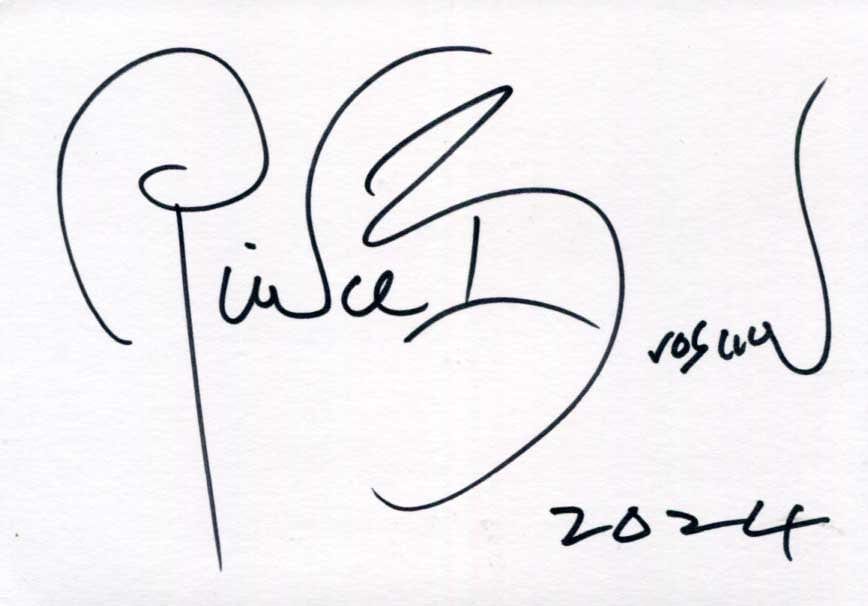 Pierce Brosnan
2024